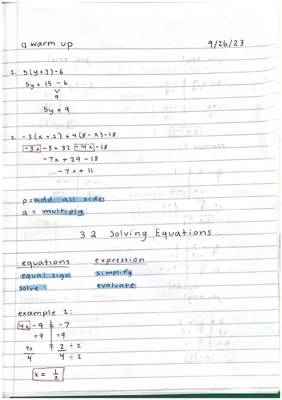 a warm up 9/26/23
1. 5(y+3)-6
5y + 15 - 6
9
5y + 9
2. -3(x+1)+4(8-x)-18
-3x -3 + 32 -4x -18
-7x + 29 - 18
-7x + 11
p = add all sides
a = multiply
3.2 Solving Equations
equations expression
equal sign simplify
solve evaluate
example 1:
4x - 9 = -7
+9 +9
4x/4 2/4 ÷ 2 ÷ 2
x = 1/2